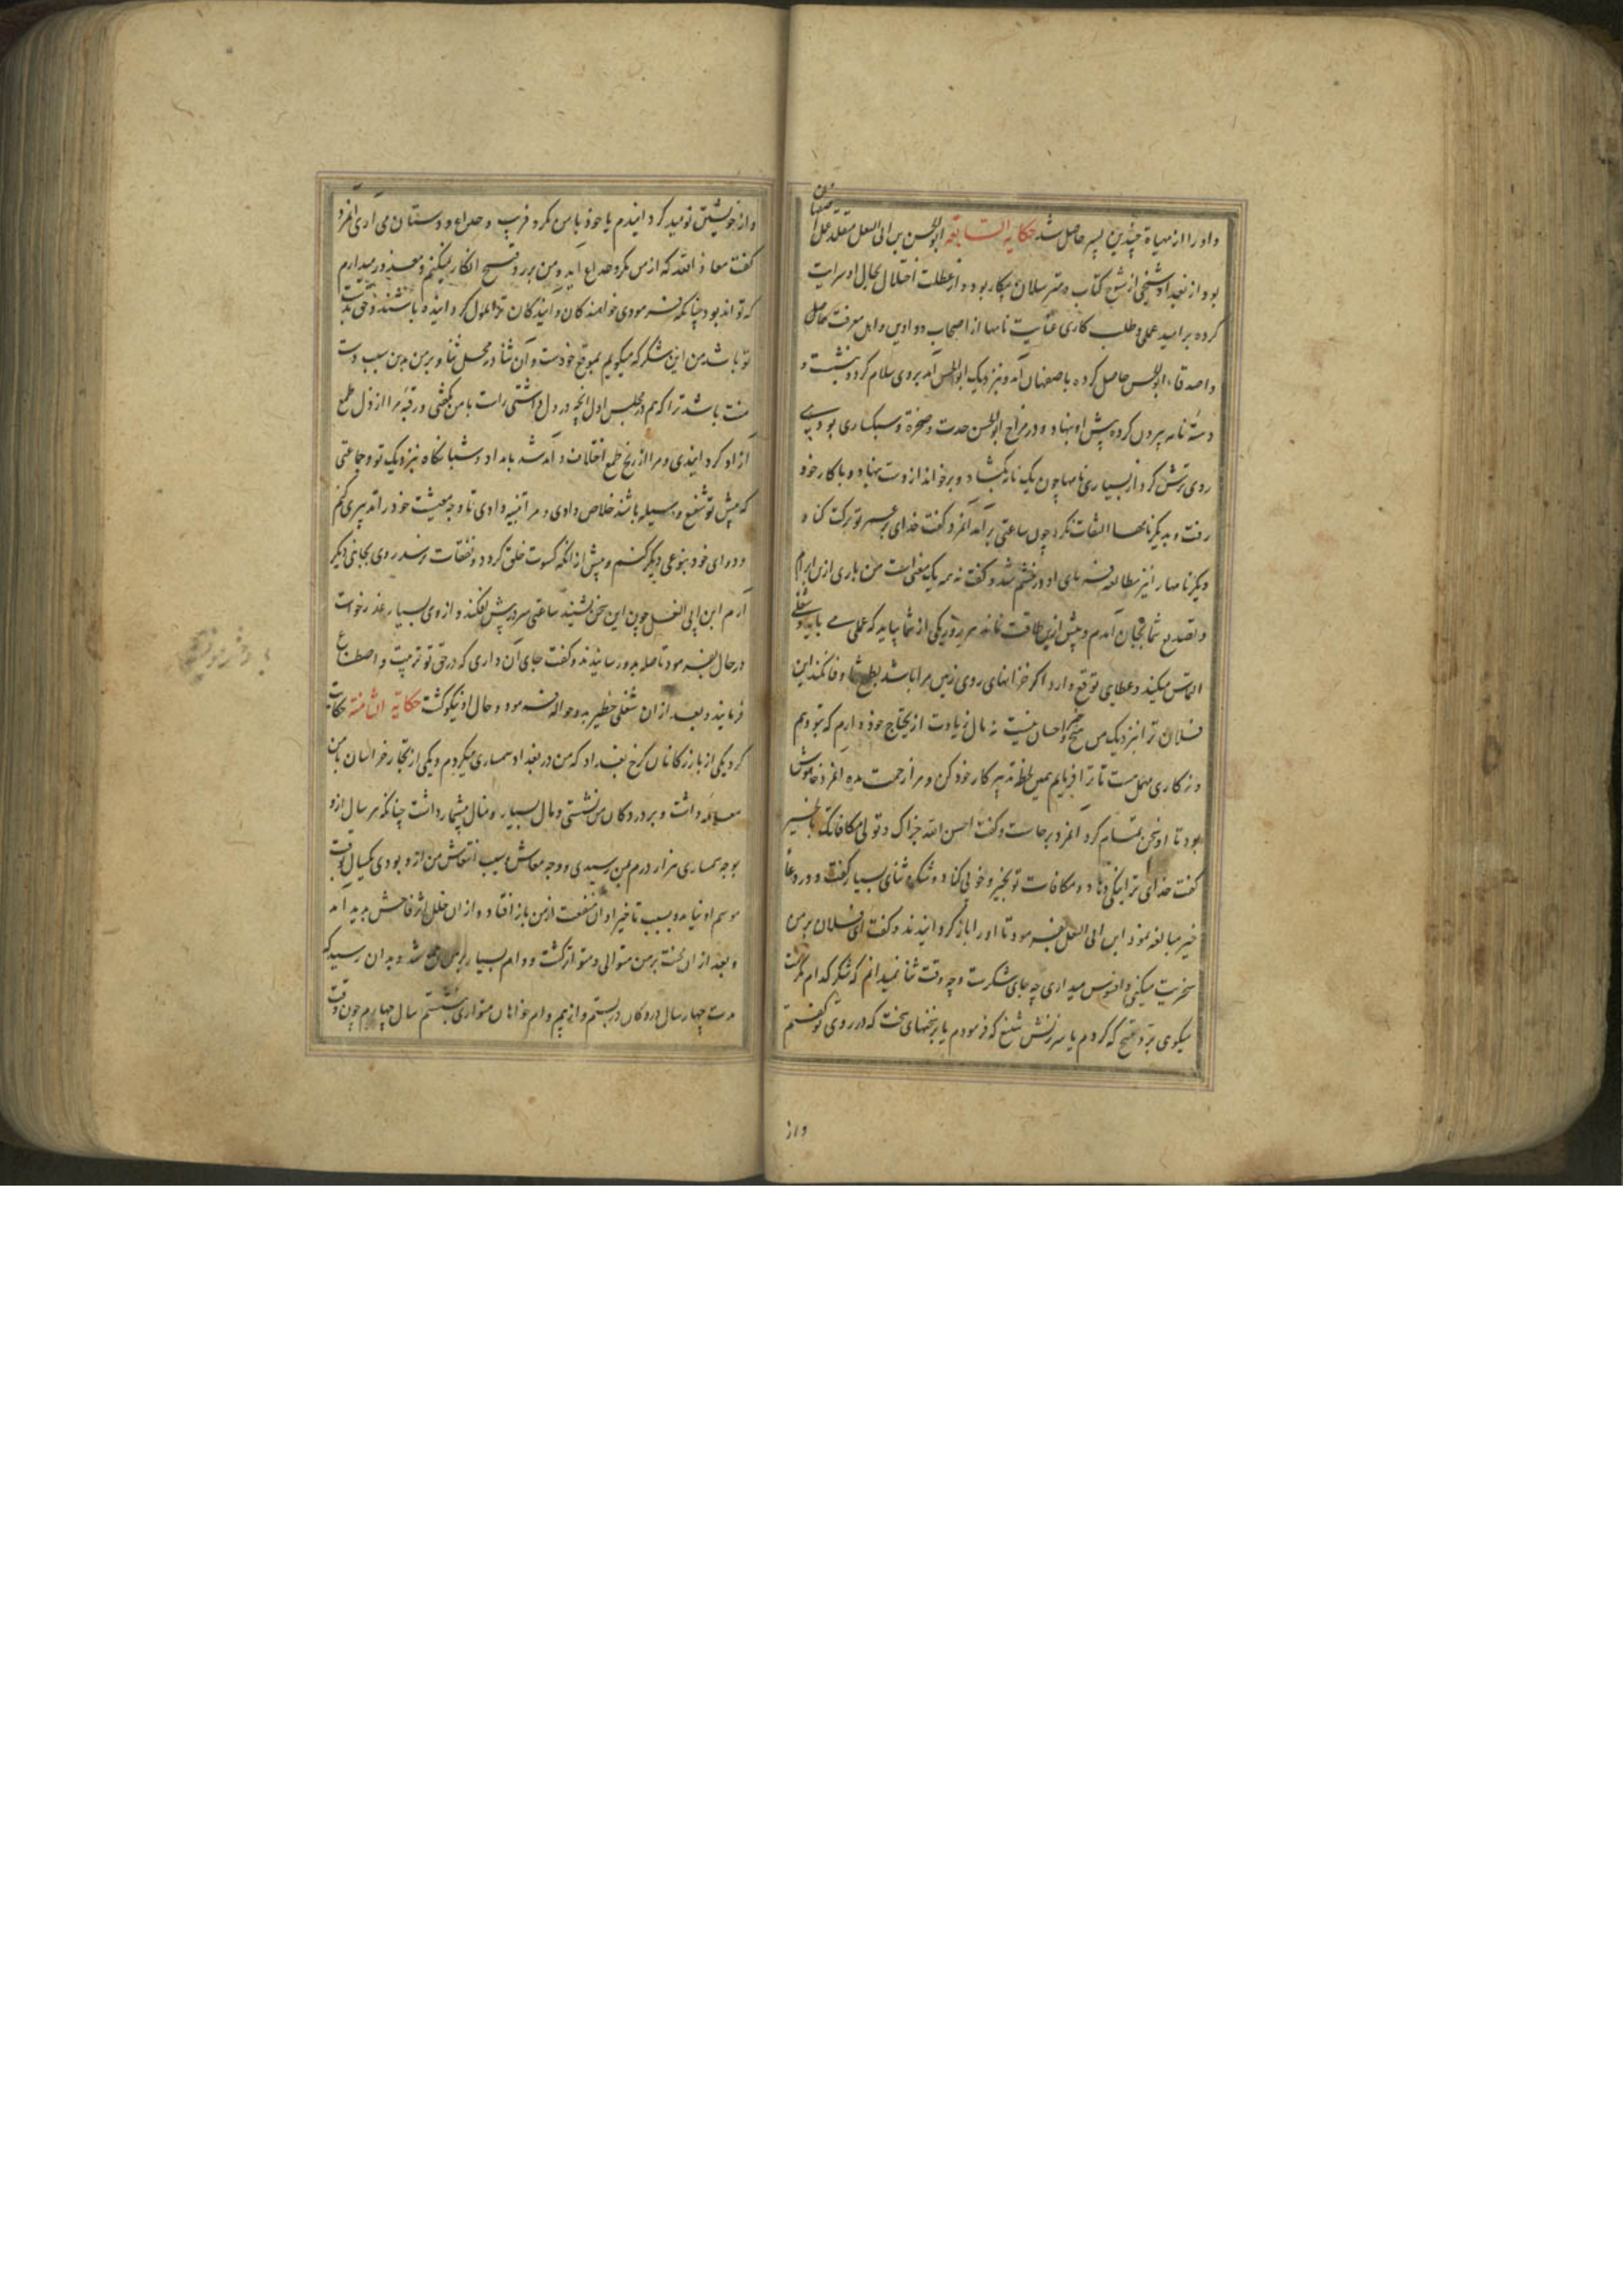 و او را از مهیاة چندین پسر حاصل شد حکایة السابعة ابوالحسن بن ابی البغل متقلد عمل اصفهان
بود از بغداد شیخی از شیوخ کتاب و مترسلان بیکار بود و از عطلت اختلال بحال او سرایت
کرده بر امید عملی و طلب کاری عنایت نامها از اصحاب دواوین و اهل معرفت حاصل
و اصدقاء ابوالحسن حاصل کرده باصفهان آمد و نزدیک ابوالحسن آمد بر وی سلام کرد و بنشست و
دستهٔ نامه بیرون کرده پیش او بنهاد و در مزاج ابوالحسن حدت و ضجرة و سبکساری بود
روی ترش کرد از بسیاری نامها چون یک نامه بکشاد و برخواند از دست بنهاد و با کار خود
رفت و بدیگر نامها التفات نکرد چون ساعتی برآمد آنمرد گفت خدای بر عمر تو برکت کناد
دیگر نامها را نیز مطالعه فرمای او در خشم شد و گفت نه همه یک معنی است من باری ازین ابرام
و تصدیع شما بجان آمدم و بیش ازین طاقت نماند هر روز یکی از شما بیاید که عملی می باید و شغلی
التماس میکند و عطایی توقع دارد اگر خزانهای روی زمین مرا باشد بطمع شما وفا نکند این
فلان ترا نزدیک من هیچ خیر و احسان نیست نه مال زیادت از یحتاج خود دارم که بتو دهم
و نه کاری مهمل مست تا ترا فرمایم همین لحظه تدبیر کار خود کن و مرا زحمت مده آنمرد خاموش
بود تا او سخن تمام کرد آنمرد برخاست و گفت احسن الله جزاک و تولی مکافاتک بالخیر
گفت خدای ترا نیکی دهاد و مکافات تو بخیر و خوبی کناد و شکر و ثنای بسیار گفت و در دعا
خیر مبالغه نمود ابن ابی البغل بفرمود تا او را باز گردانیدند و گفت ای فلان بر من
سخریت میکنی و افسوس میداری چه جای شکرست و چه وقت ثنا نمیدانم که شکر کدام مکرمت
میکوی برد قبیح که کردم یا سرزنش شنیع که فرمودم یا برنجهای سخت که در روی تو گفتم
واز
و از خویشتن نومید گردانیدم یا خود با من مکر و فریب و خداع و دستان می آری آنمرد
گفت معاذ الله که از من مکر و خداع آید و من برد قبیح انکار نمیکنم و معذور میدارم
که تواند بود چنانکه فرمودی خواهندکان و آیندکان ترا ملول گردانیده باشند و حق بدست
تو باشد من این شکر که میگویم بموقع خودست و آن ثنا در محل ثنا و بر من بدین سبب دست
منت باشد ترا که هم در مجلس اول آنچه در دل داشتی راست با من بگفتی و رقبهٔ مرا از ذل طمع
آزاد گردانیدی و مرا از رنج طمع اختلاف و آمد شد بامداد و شبانگاه نزدیک تو و جماعتی
که پیش تو شفیع و وسیله باشند خلاص دادی و مرا تنبیه دادی تا وجه معیشت خود را تدبیری کنم
و دوای خود بنوعی دیگر کنم و پیش از آنکه کسوت خلق گردد و نفقات برسد روی بجانبی دیگر
آرم ابن ابی البغل چون این سخن بشنید ساعتی سر در پیش افکند و از وی بسیار عذر خواست
در حال بفرمود تا صله بدو رسانیدند و گفت جای آن داری که در حق تو تربیت و اصطناع
فرمایند و بعد از آن شغلی خطیر بدو حواله فرمود و حال او نیکو گشت حکایة الثامنة حکایت
کرد یکی از بازرگانان کرخ بغداد که من در بغداد سمساری میکردم و یکی از تجار خراسان با من
معامله داشت و بر در دکان من نشستی و مال بسیار و منال بیشمار داشت چنانکه هر سال ازو
بوجه سمساری هزار درم بمن رسیدی و وجه معاش و سبب انتعاش من ازو بودی یکسال بوقت
موسم او نیامد و بسبب تأخیر او آن منفعت از من باز افتاد و از آن خلل اثر فاحش پدید آمد
و بعد از آن محنت بر من متوالی و متواتر گشت و وام بسیار بر من جمع شد و بدان رسید که
مدت چهار سال در دکان در بستم و از بیم وام خواهان متواری بنشستم سال چهارم چون وقت